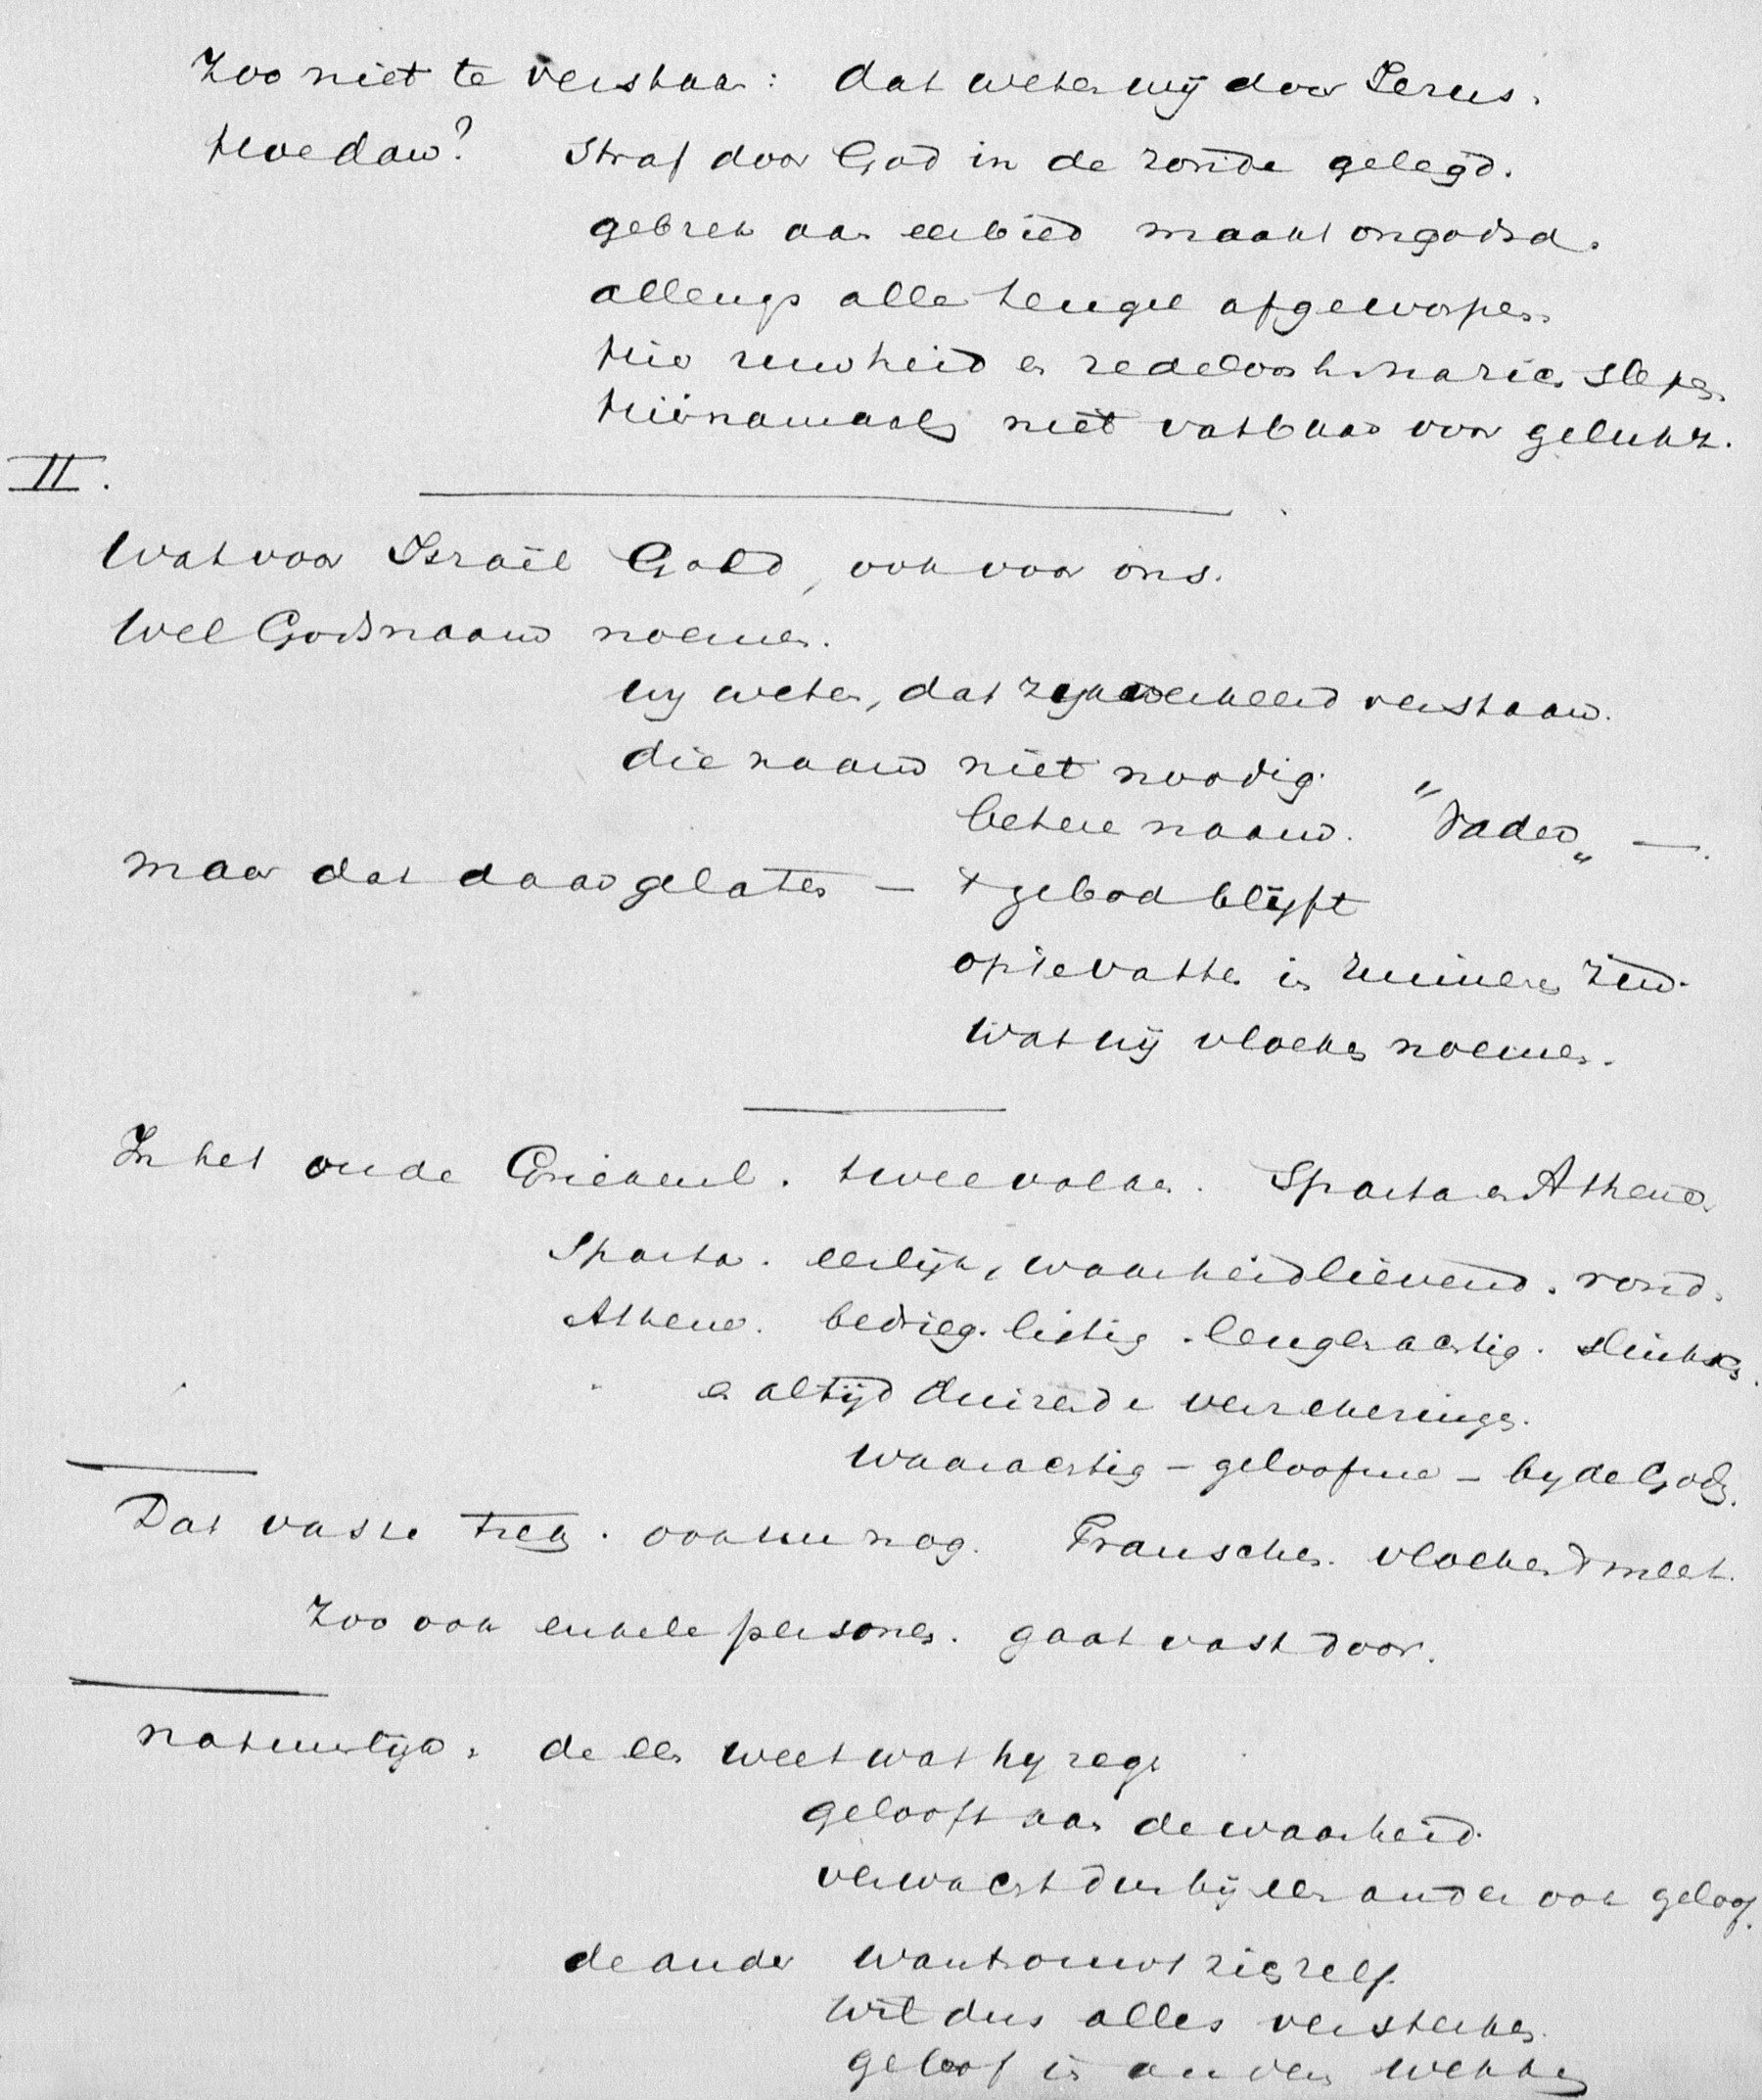 Zoo niet te verstaan: dat weten wij door Jezus.
Hoe dan? Straf door God in de zonde gelegd.
gebrek aan eerbied maakt ongodsd.
allengs alle teugel afgeworpen
Hier ruwheid en redeloosh. na zich slepen
Hiernamaals niet vatbaar voor geluk z.
II.
Wat voor Israël Gold, ook voor ons.
Wel Godsnaam noemen.
wij weten, dat zij verkeerd verstaan.
die naam niet noodig.
betere naam. "Vader" —.
maar dat daargelaten — t gebod blijft
op te vatten in ruimeren zin.
Wat wij vloeken noemen.
In het oude Griekenl. twee volken. Sparta en Athene.
Sparta. eerlijk, waarheidlievend. rond.
Athene. bedrieg. listig. leugenachtig. slinksch.
en altijd duizende verzekeringen.
waarachtig – geloof me – bij de Goden.
Dat vaste trek. ook nu nog. Franschen. vloeken t meest.
Zoo ook enkele personen. gaat vast door.
natuurlijk. de een weet wat hij zegt
gelooft aan de waarheid.
verwacht dus bij een ander ook geloof.
de ander wantrouwt zich zelf.
wil dus alles versterken.
geloof in anderen wekken